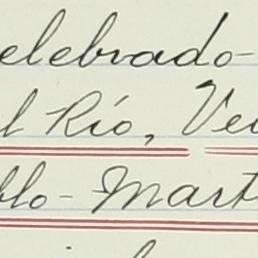 elebrado-
l Río, Ve
blo-Mart